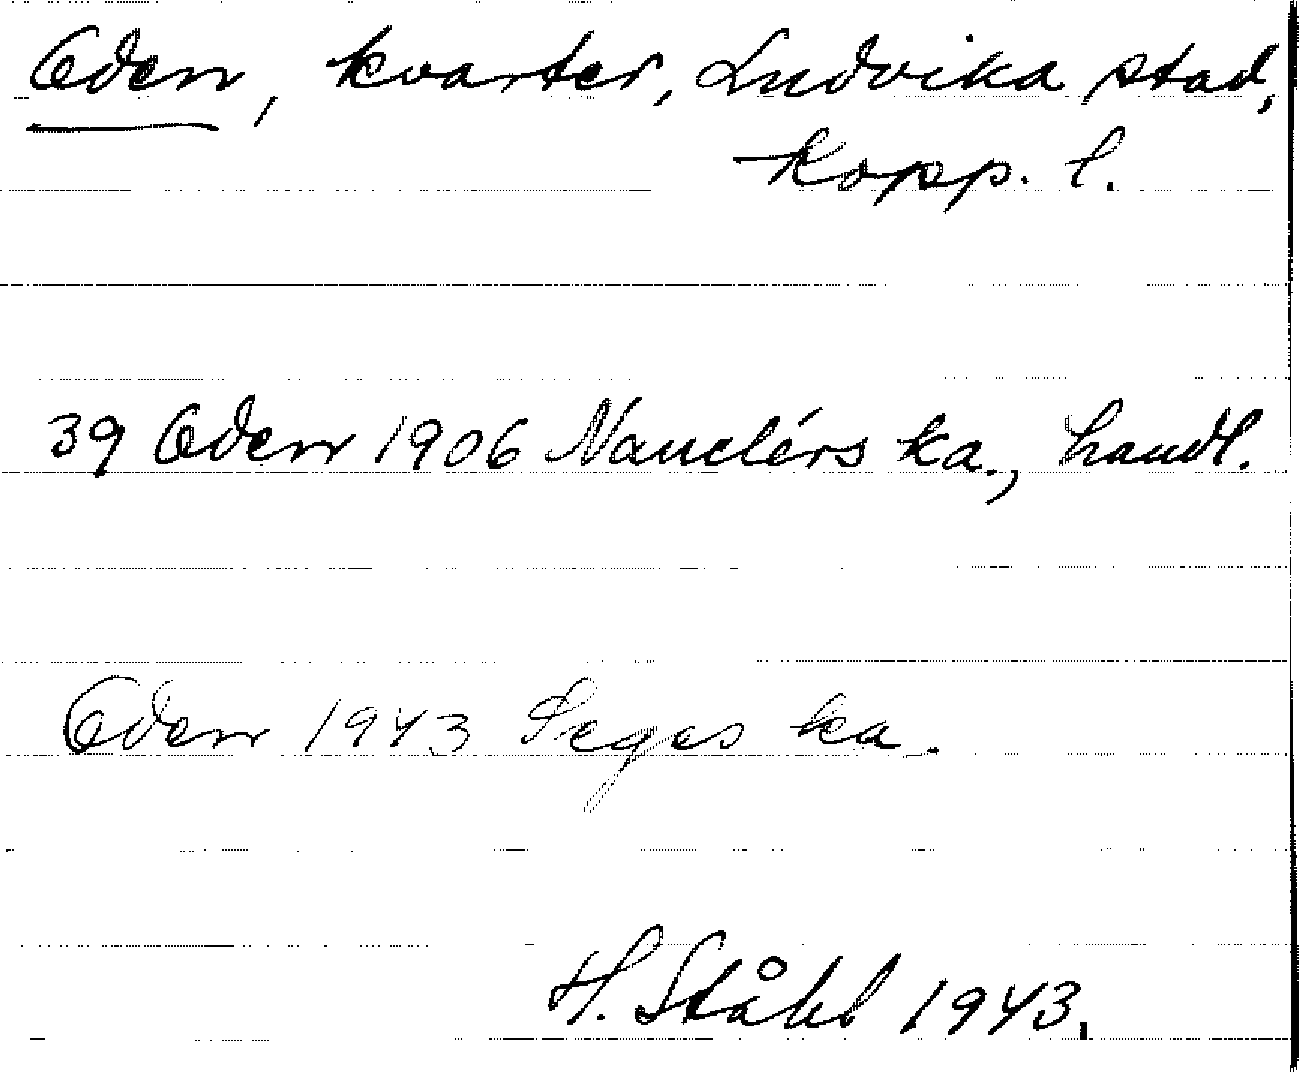 Oden, kvarter, Ludvika stad,
Kopp. l.
39 Oden 1906 Nauclérs ka., handl.
Oden 1943 Seges ka.
H. Ståhl 1943.